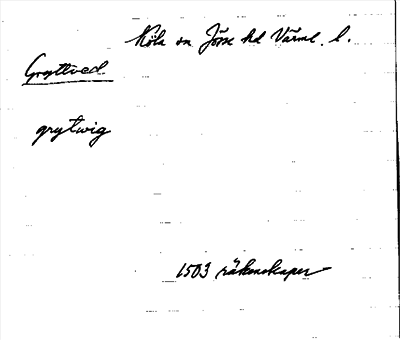 Köla sn Jösse hd Värml. l.
Gryttved
grytwig
1503 räkenskaper